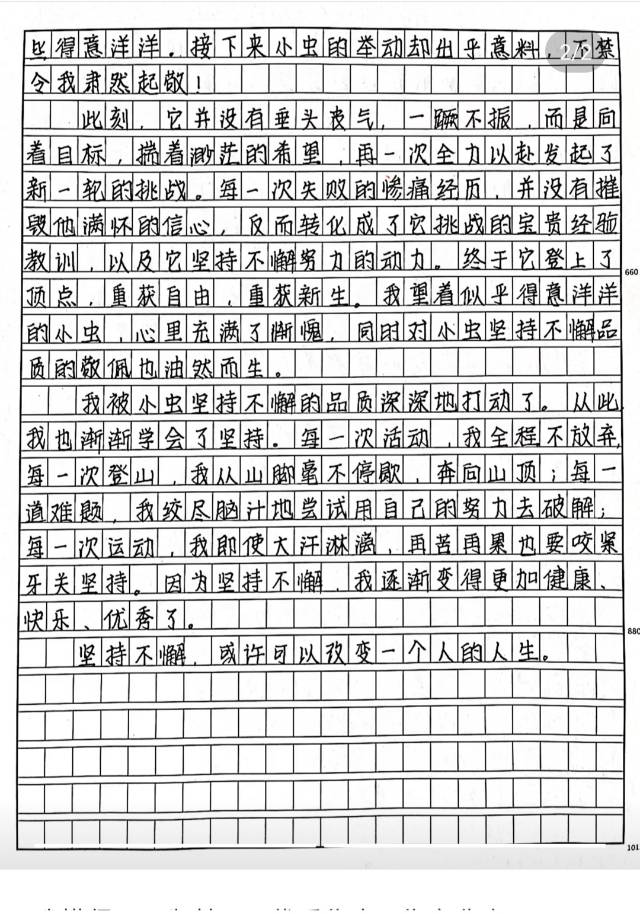 些得意洋洋。接下来小虫的举动却出乎意料，不禁
2/2
令我肃然起敬！
此刻，它并没有垂头丧气，一蹶不振，而是向
着目标，揣着渺茫的希望，再一次全力以赴发起了
新一轮的挑战。每一次失败的惨痛经历，并没有摧
毁他满怀的信心，反而转化成了它挑战的宝贵经验
教训，以及它坚持不懈努力的动力。终于它登上了
660
顶点，重获自由，重获新生。我望着似乎得意洋洋
的小虫，心里充满了惭愧，同时对小虫坚持不懈品
质的敬佩也油然而生。
我被小虫坚持不懈的品质深深地打动了。从此，
我也渐渐学会了坚持。每一次活动，我全程不放弃，
每一次登山，我从山脚毫不停歇，奔向山顶；每一
道难题，我绞尽脑汁地尝试用自己的努力去破解；
每一次运动，我即使大汗淋漓，再苦再累也要咬紧
牙关坚持。因为坚持不懈，我逐渐变得更加健康、
快乐、优秀了。
880
坚持不懈，或许可以改变一个人的人生。
101